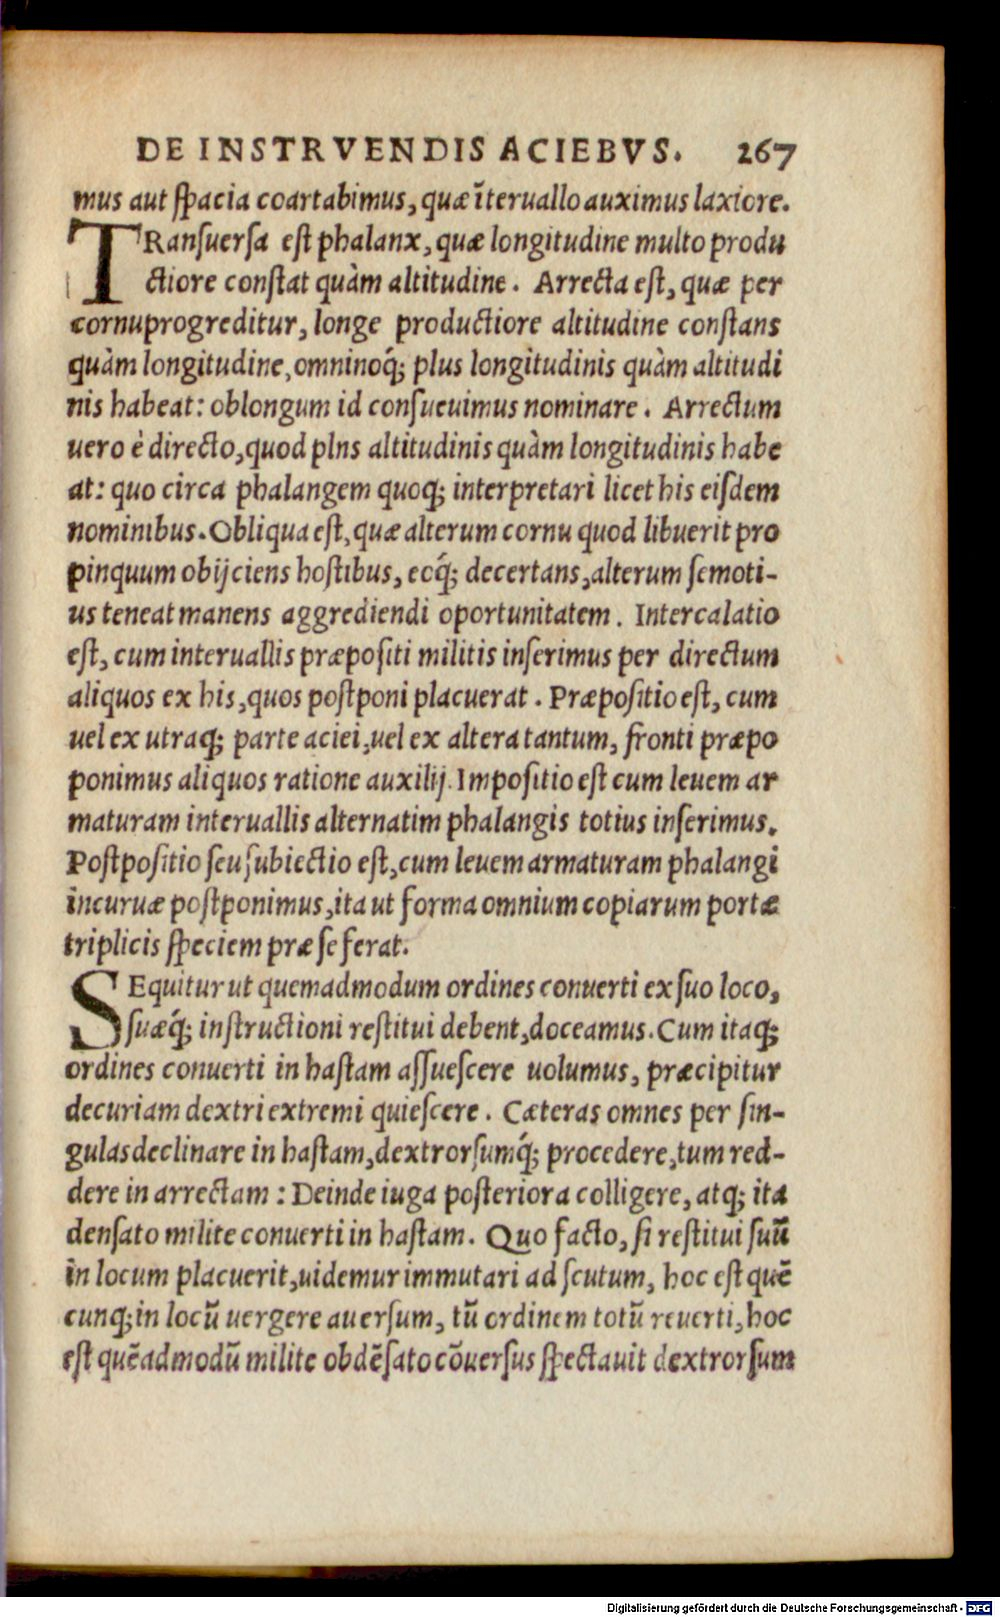 DE INSTRVENDIS ACIEBVS. 267
mus aut spacia coartabimus, quæ ĩteruallo auximus laxiore.
TRansuersa est phalanx, quæ longitudine multo produ
ctiore constat quàm altitudine. Arrecta est, quæ per
cornu progreditur, longe productiore altitudine constans
quàm longitudine, omninoq́; plus longitudinis quàm altitudi
nis habeat: oblongum id consueuimus nominare. Arrectum
uero è directo, quod plns altitudinis quàm longitudinis habe
at: quo circa phalangem quoq; interpretari licet his eisdem
nominibus. Obliqua est, quæ alterum cornu quod libuerit pro
pinquum obijciens hostibus, eoq́; decertans, alterum semoti-
us teneat manens aggrediendi oportunitatem. Intercalatio
est, cum interuallis præpositi militis inserimus per directum
aliquos ex his, quos postponi placuerat. Præpositio est, cum
uel ex utraq; parte aciei, uel ex altera tantum, fronti præpo
ponimus aliquos ratione auxilij. Impositio est cum leuem ar
maturam interuallis alternatim phalangis totius inserimus.
Postpositio seu subiectio est, cum leuem armaturam phalangi
incuruæ postponimus, ita ut forma omnium copiarum portæ
triplicis speciem præ se ferat.
SEquitur ut quemadmodum ordines conuerti ex suo loco,
suæq́; instructioni restitui debent, doceamus. Cum itaq;
ordines conuerti in hastam assuescere uolumus, præcipitur
decuriam dextri extremi quiescere. Cæteras omnes per sin-
gulas declinare in hastam, dextrorsumq́; procedere, tum red-
dere in arrectam: Deinde iuga posteriora colligere, atq; ita
densato milite conuerti in hastam. Quo facto, si restitui suũ
in locum placuerit, uidemur immutari ad scutum, hoc est quẽ
cunq; in locũ uergere auersum, tũ ordinem totũ reuerti, hoc
est quẽadmodũ milite obdẽsato cõuersus spectauit dextrorsum
Digitalisierung gefördert durch die Deutsche Forschungsgemeinschaft - DFG